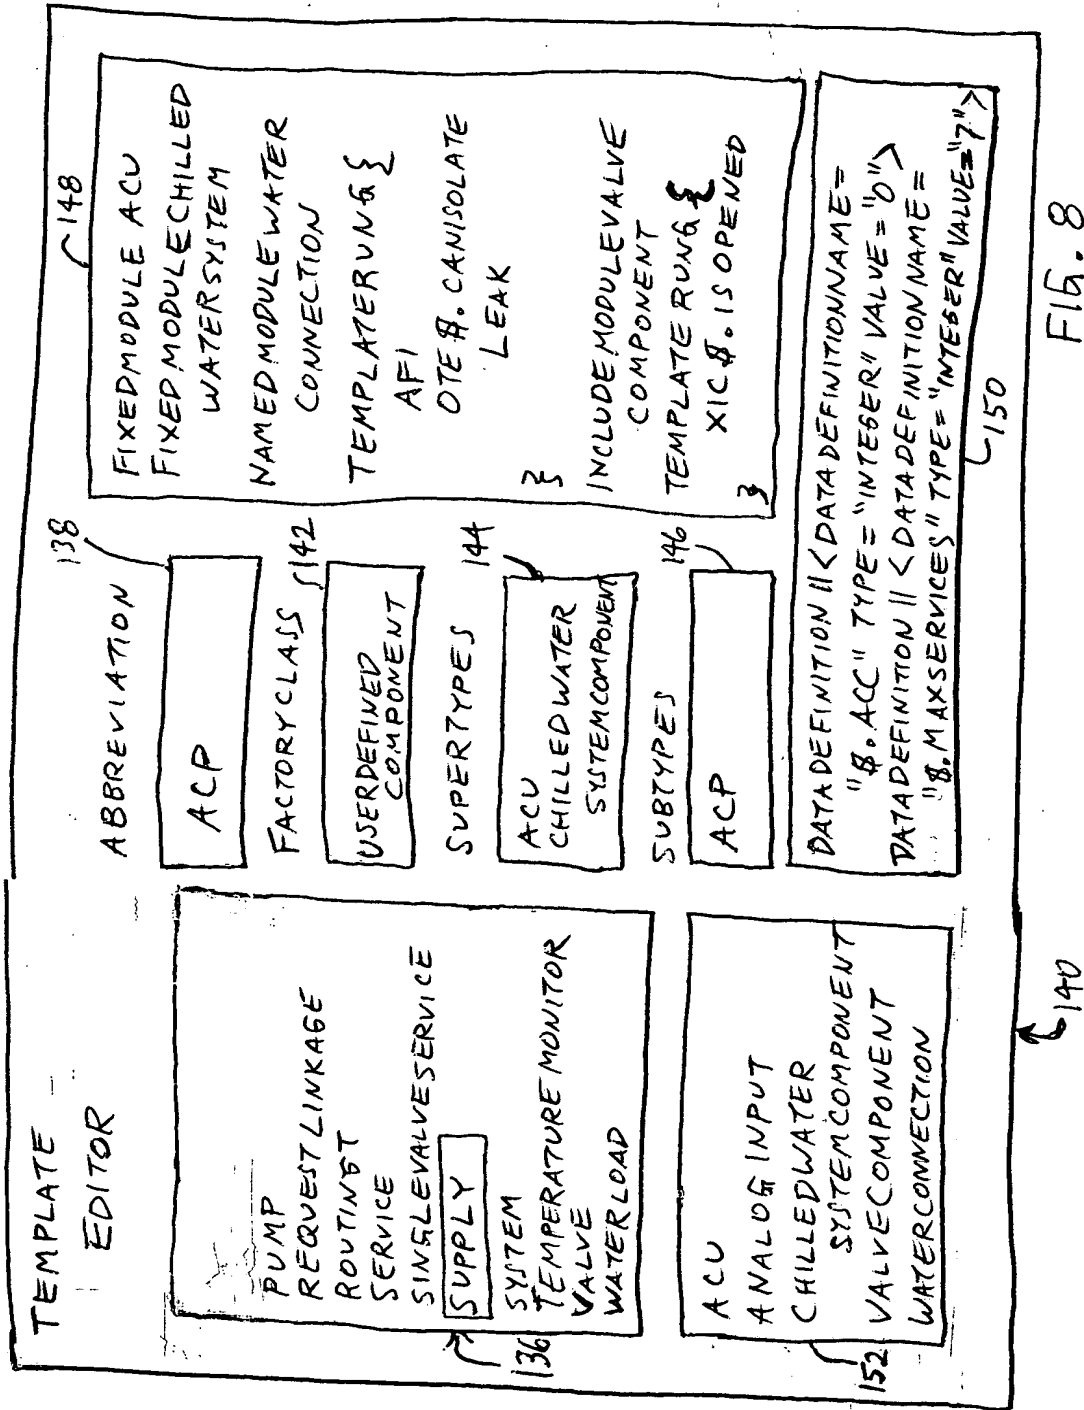 TEMPLATE
EDITOR
PUMP
REQUEST LINKAGE
ROUTINGT
SERVICE
SINGLEVALVESERVICE
SUPPLY
SYSTEM
TEMPERATURE MONITOR
VALVE
WATERLOAD
136
ACU
ANALOG INPUT
CHILLEDWATER
SYSTEMCOMPONENT
VALVECOMPONENT
WATERCONNECTION
152
ABBREVIATION
138
ACP
FACTORYCLASS
142
USERDEFINED
COMPONENT
SUPERTYPES
144
ACU
CHILLEDWATER
SYSTEMCOMPONENT
SUBTYPES
146
ACP
148
FIXEDMODULE ACU
FIXEDMODULECHILLED
WATERSYSTEM
NAMEDMODULEWATER
CONNECTION
TEMPLATERUNG {
AFI
OTE $. CANISOLATE
LEAK
}
INCLUDEMODULEVALVE
COMPONENT
TEMPLATERUNG {
XIC $. ISOPENED
}
DATADEFINITION || <DATADEFINITIONNAME=
"$.ACC" TYPE="INTEGER" VALUE="0">
DATADEFINITION || <DATADEFINITIONNAME=
"$.MAXSERVICES" TYPE="INTEGER" VALUE="7">
150
140
FIG. 8